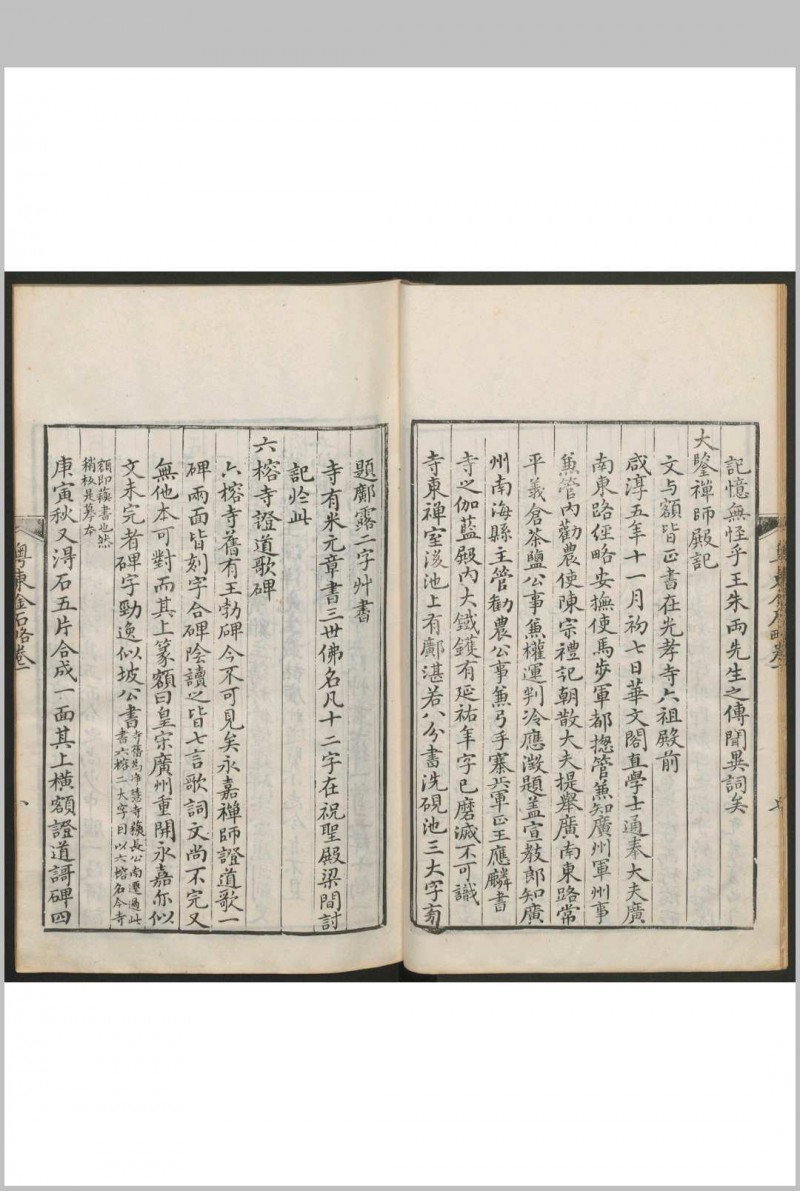 記憶無怪乎王朱兩先生之傳聞異詞矣
大鑒禪師殿記
文与額皆正書在光孝寺六祖殿前
咸淳五年十一月初七日華文閣直學士通奉大夫廣
南東路經略安撫使馬步軍都揔管蕪知廣州軍州事
蕪管內勸農使陳宗禮記朝散大夫提舉廣南東路常
平義倉茶鹽公事蕪權運判冷應澂題盖宣教郎知廣
州南海縣主管勸農公事蕪弓手寨兵軍正王應麟書
寺之伽藍殿內大鐵鑊有延祐年字已磨滅不可識
寺東禪室後池上有鄺湛若八分書洗硯池三大字前
題鄺露二字艸書
寺有米元章書三世佛名凡十二字在祝聖殿梁間討
記於此
六榕寺證道歌碑
六榕寺舊有王勃碑今不可見矣永嘉禪師證道歌一
碑兩面皆刻字合碑陰讀之皆七言歌詞文尚不完又
無他本可對而其上篆額曰皇宋廣州重開永嘉尔似
文未完者碑字勁逸似坡公書
寺舊為净慧寺蘓長公南遷過此
書六榕二大字目以六榕名今寺
額即蘓書也然
稍板是摹本
庚寅秋又淂石五片合成一面其上橫額證道謌碑四
粵東金石略卷一
八